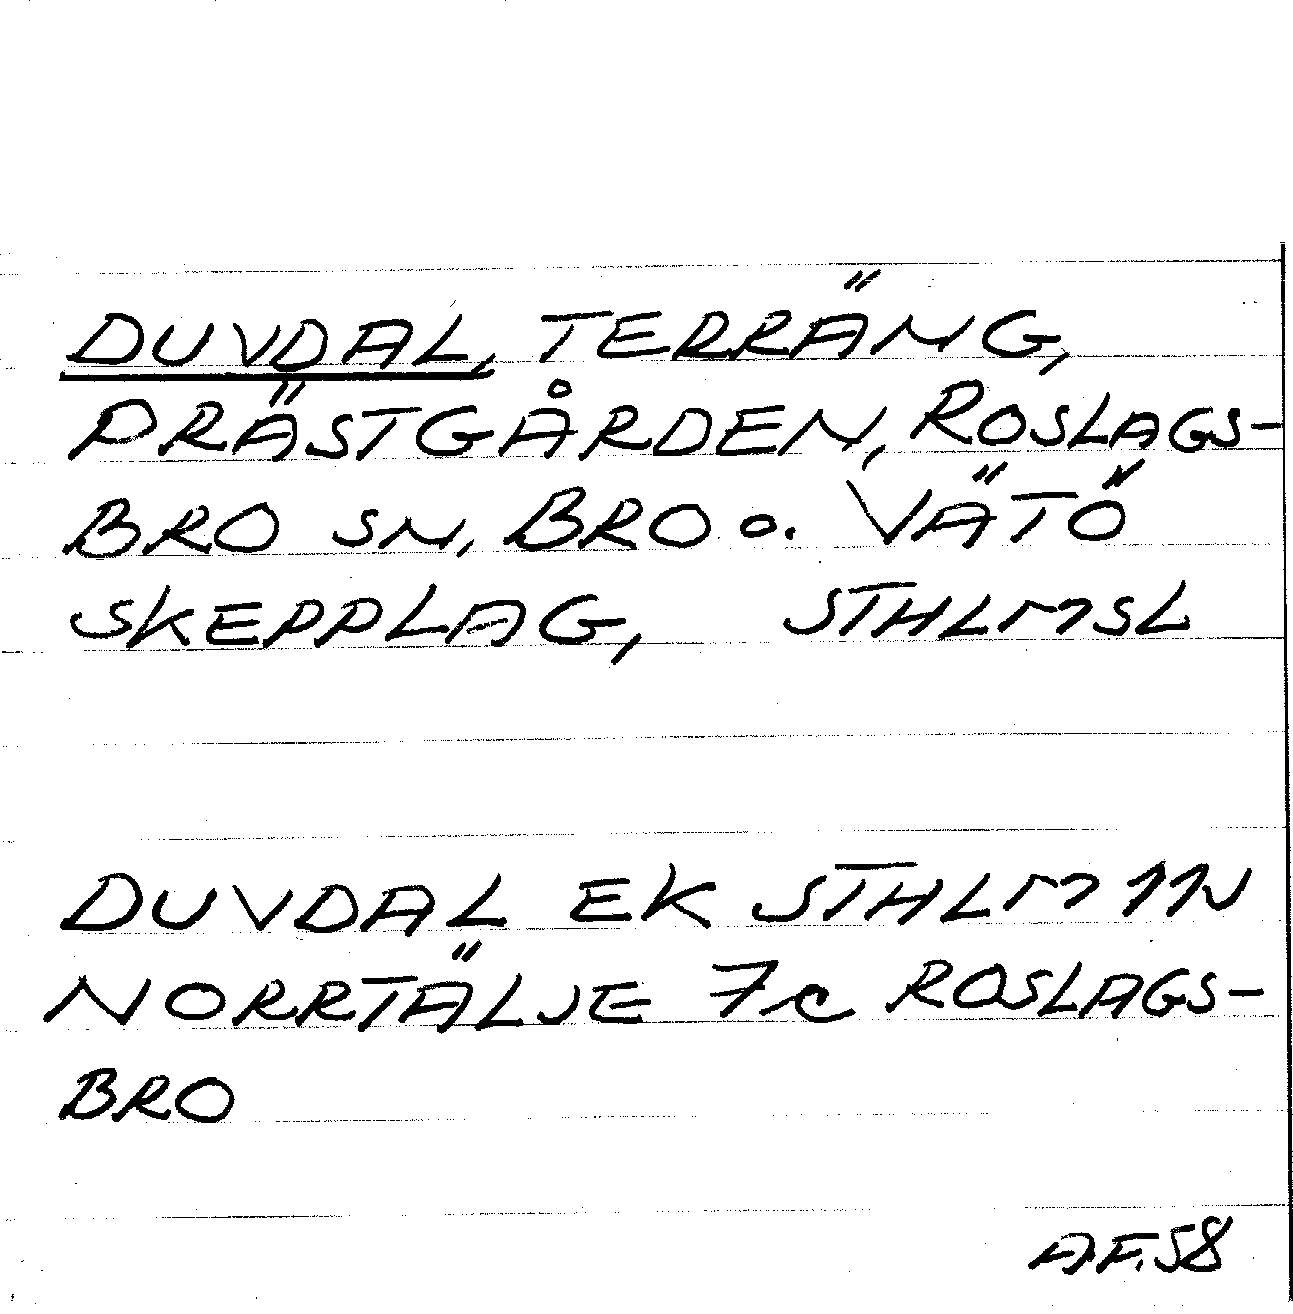 DUVDAL, TERRÄNG,
PRÄSTGÅRDEN, ROSLAGS-
BRO SN, BRO o. VÄTÖ
SKEPPLAG, STHLMSL
DUVDAL EK STHLM 11N
NORRTÄLJE 7c ROSLAGS-
BRO
A.F. 58